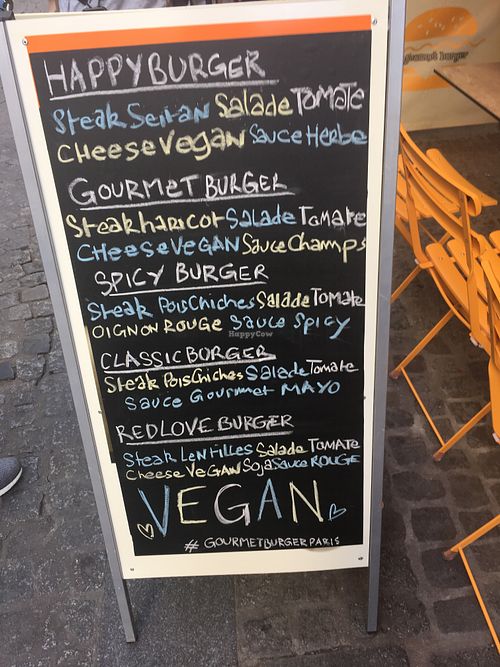 HAPPY BURGER
Steak Seitan Salade TOMATE
CHeese Vegan Sauce Herbe
GOURMET BURGER
Steak haricot Salade TOMATE
CHeese VEGAN Sauce Champs
SPICY BURGER
Steak PoisChiches Salade TOMATE
OIGNON ROUGE Sauce SPICY
CLASSIC BURGER
Steak PoisChiches Salade TOMATE
Sauce Gourmet MAYO
RED LOVE BURGER
Steak LENTILLES Salade TOMATE
Cheese VEGAN Soja Sauce ROUGE
VEGAN
# GOURMETBURGERPARIS
gourmet burger
HappyCow